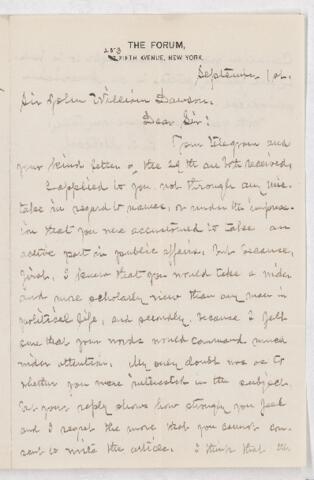 THE FORUM,
253
FIFTH AVENUE, NEW YORK.
September 1st.
Sir John William Dawson.
Dear Sir:
Your telegram and
your kind letter of the 29th are both received.
I applied to you, not through any mis-
take in regard to names, or under the impres-
sion that you were accustomed to take an
active part in public affairs, but because,
first, I knew that you would take a wider
and more scholarly view than any man in
political life, and secondly, because I felt
sure that your words would command much
wider attention. My only doubt was as to
whether you were interested in the subject.
But your reply shows how strongly you feel
and I regret the more that you cannot con-
sent to write the article. I think that the